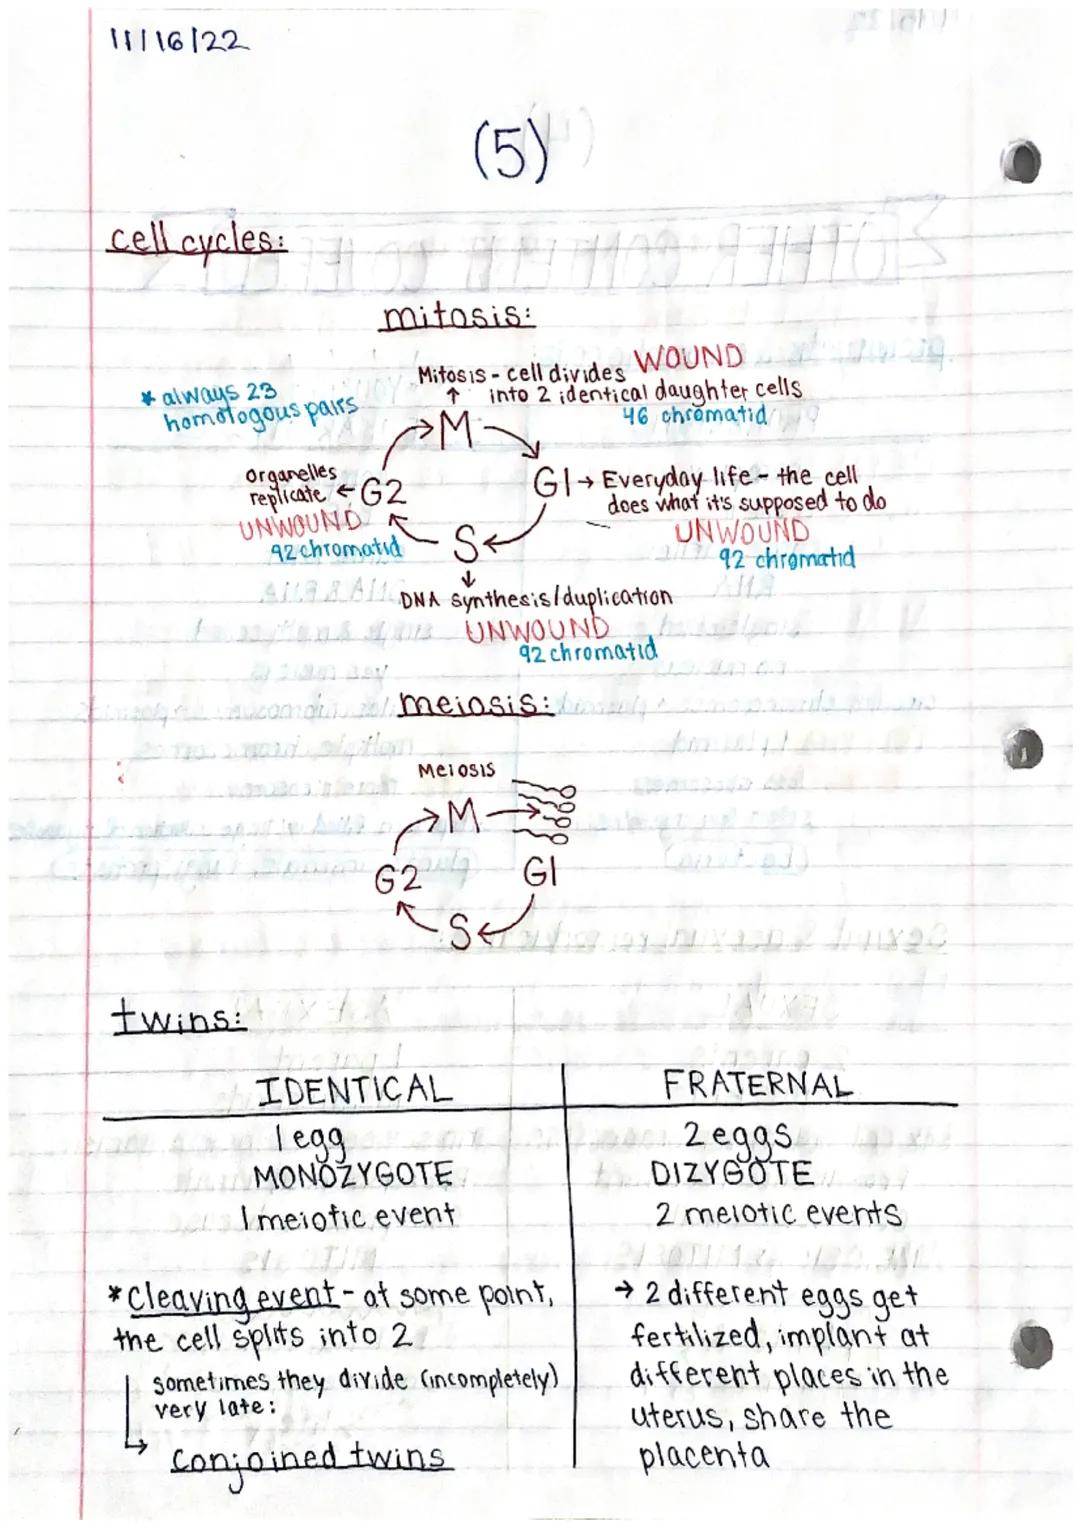 11/16/22
(5)
cell cycles:
mitosis:
WOUND
Mitosis - cell divides
↑ into 2 identical daughter cells
46 chromatid
* always 23
homologous pairs
M
organelles
replicate ← G2
UNWOUND
92 chromatid
G1 → Everyday life - the cell
does what it's supposed to do
UNWOUND
92 chromatid
S
↓
DNA synthesis/duplication
UNWOUND
92 chromatid
meiosis:
Meiosis
M
G2
G1
S
twins:
IDENTICAL
1 egg
MONOZYGOTE
1 meiotic event
* Cleaving event - at some point,
the cell splits into 2
sometimes they divide (incompletely)
very late:
↳ conjoined twins
FRATERNAL
2 eggs
DIZYGOTE
2 meiotic events
→ 2 different eggs get
fertilized, implant at
different places in the
uterus, share the
placenta